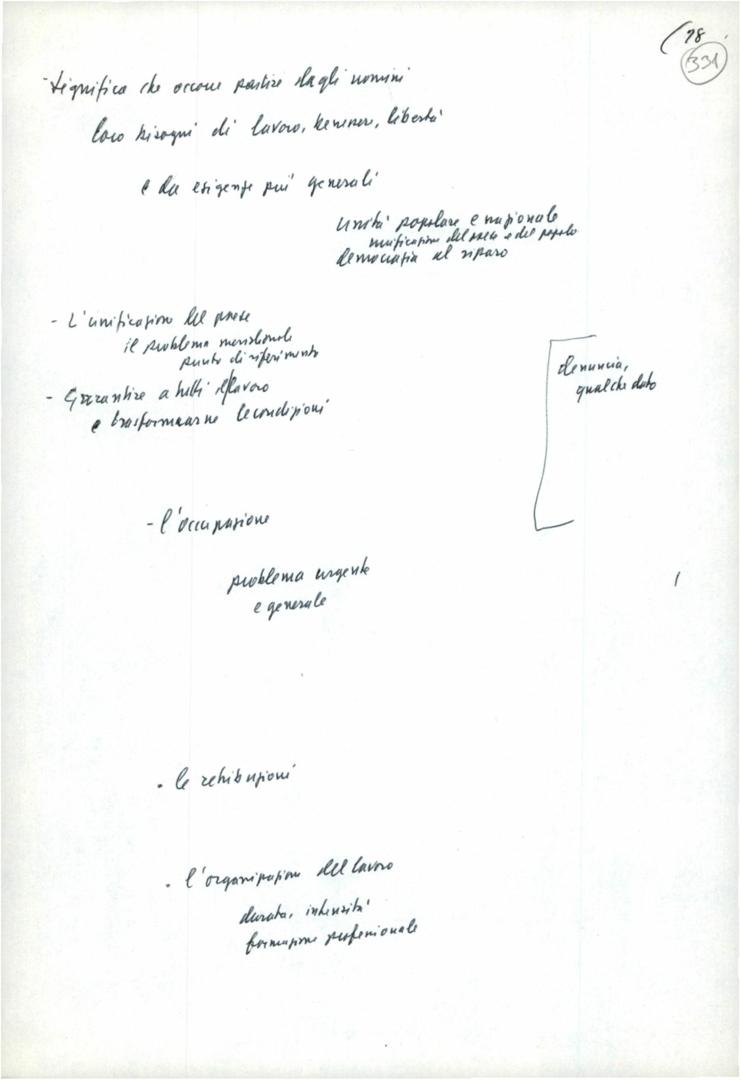 (28
331
- Significa che occorre partire dagli uomini
loro bisogni di lavoro, benessere, libertà
e da esigenze più generali
unità popolare e nazionale
unificazione del paese e del popolo
democrazia al riparo
- L'unificazione del paese
il problema meridionale
punto di riferimento
- Garantire a tutti il lavoro
e trasformarne le condizioni
denuncia,
qualche dato
- l'occupazione
problema urgente
e generale
. le retribuzioni
. l'organizzazione del lavoro
durata, intensità
formazione professionale